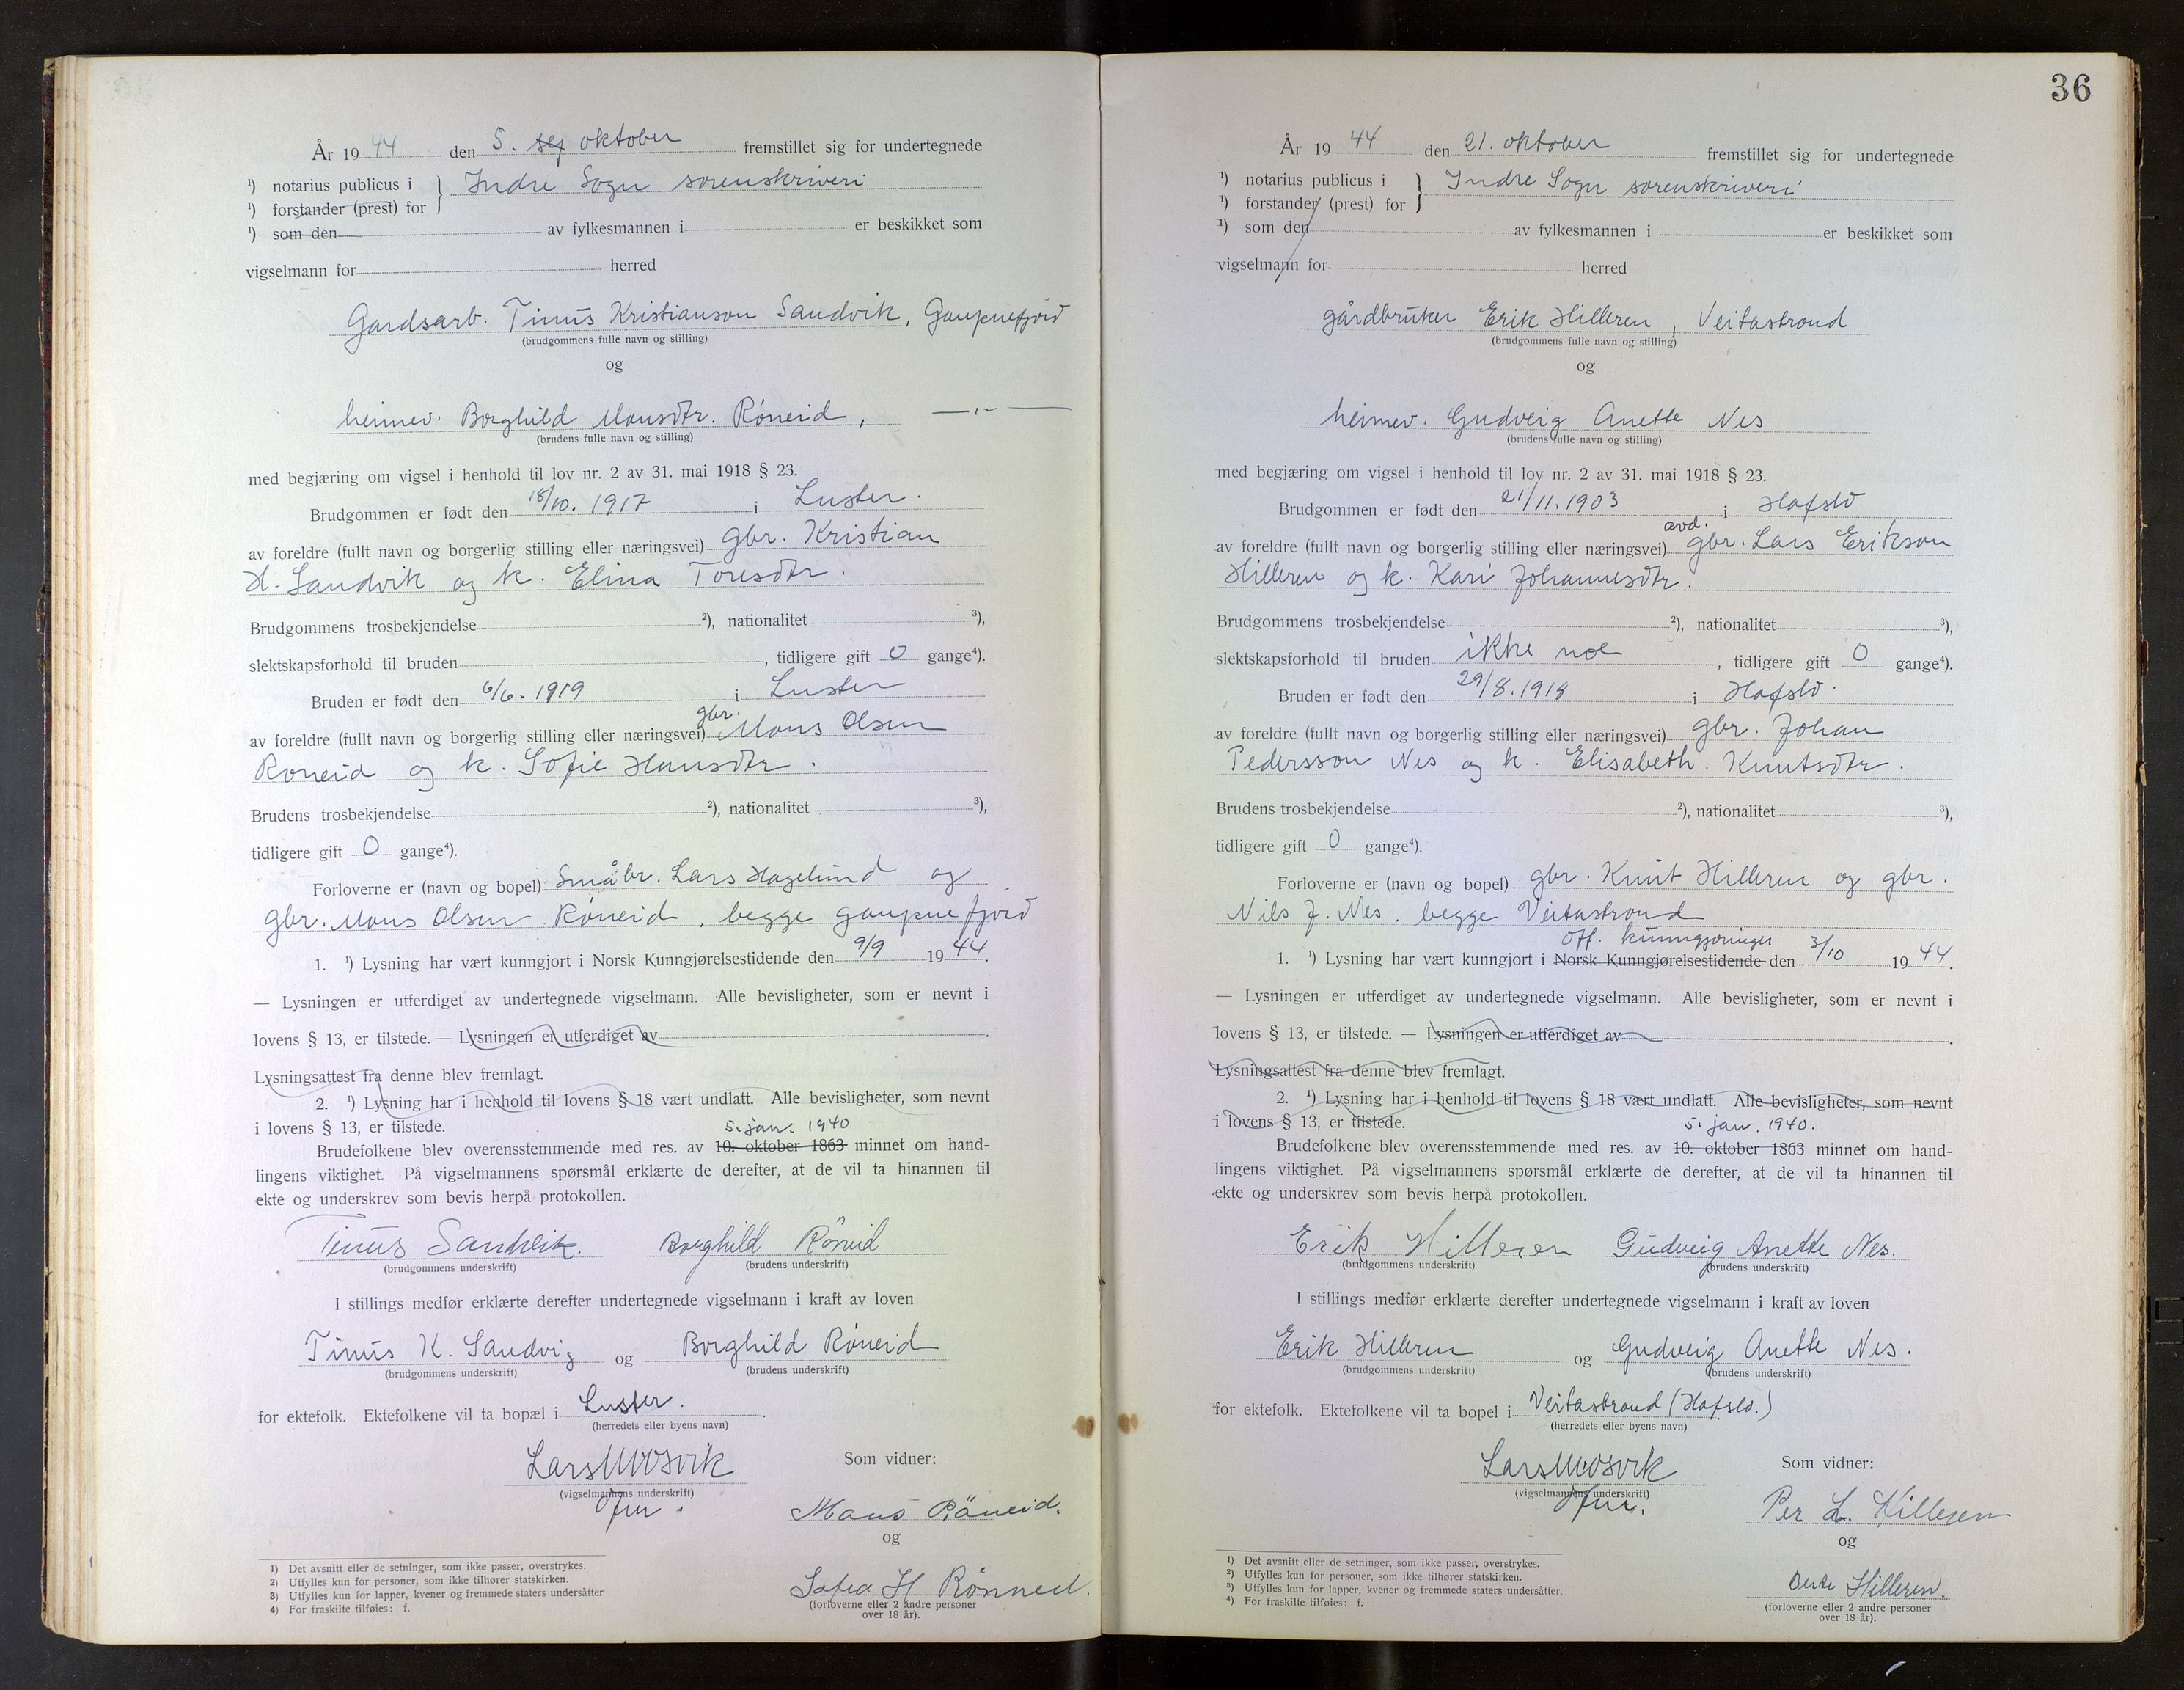 År 1944 den 5. sep oktober fremstillet sig for undertegnede
¹) notarius publicus i } Indre Sogn sorenskriveri
¹) forstander (prest) for
¹) som den av fylkesmannen i er beskikket som
vigselmann for herred
Gardsarb. Tinus Kristianson Sandvik, Gaupnefjord
(brudgommens fulle navn og stilling)
og
heimev. Borghild Monsdtr. Røneid, —"—
(brudens fulle navn og stilling)
med begjæring om vigsel i henhold til lov nr. 2 av 31. mai 1918 § 23.
Brudgommen er født den 18/10. 1917 i Luster.
av foreldre (fullt navn og borgerlig stilling eller næringsvei) gbr. Kristian
H. Sandvik og k. Elina Toresdtr.
Brudgommens trosbekjendelse ²), nationalitet ³),
slektskapsforhold til bruden , tidligere gift 0 gange⁴).
Bruden er født den 6/6. 1919 i Luster
gbr.
av foreldre (fullt navn og borgerlig stilling eller næringsvei) Mons Olsen
Røneid og k. Sofie Hansdtr.
Brudens trosbekjendelse ²), nationalitet ³),
tidligere gift 0 gange⁴).
Forloverne er (navn og bopel) Småbr. Lars Hagelund og
gbr. Mons Olsen Røneid, begge Gaupnefjord
1. ¹) Lysning har vært kunngjort i Norsk Kunngjørelsestidende den 9/9 1944.
— Lysningen er utferdiget av undertegnede vigselmann. Alle bevisligheter, som er nevnt i
lovens § 13, er tilstede. — Lysningen er utferdiget av .
Lysningsattest fra denne blev fremlagt.
2. ¹) Lysning har i henhold til lovens § 18 vært undlatt. Alle bevisligheter, som nevnt
i lovens § 13, er tilstede.
5. jan. 1940
Brudefolkene blev overensstemmende med res. av 10. oktober 1863 minnet om hand-
lingens viktighet. På vigselmannens spørsmål erklærte de derefter, at de vil ta hinannen til
ekte og underskrev som bevis herpå protokollen.
Tinus Sandvik. Borghild Röneid
(brudgommens underskrift) (brudens underskrift)
I stillings medfør erklærte derefter undertegnede vigselmann i kraft av loven
Tinus K. Sandvig og Borghild Røneid
(brudgommens underskrift) (brudens underskrift)
for ektefolk. Ektefolkene vil ta bopæl i Luster.
(herredets eller byens navn)
Som vidner:
Lars
(vigselmannens underskrift)
Mons Röneid.
og
Sofia H Rönneid.
(forloverne eller 2 andre personer
over 18 år).
1) Det avsnitt eller de setninger, som ikke passer, overstrykes.
2) Utfylles kun for personer, som ikke tilhører statskirken.
3) Utfylles kun for lapper, kvener og fremmede staters undersåtter
4) For fraskilte tilføies: f.
36
År 1944 den 21. oktober fremstillet sig for undertegnede
¹) notarius publicus i } Indre Sogn sorenskriveri
¹) forstander (prest) for
¹) som den av fylkesmannen i er beskikket som
vigselmann for herred
gårdbruker Erik Hilleren, Veitastrond
(brudgommens fulle navn og stilling)
og
heimev. Gudveig Anette Nes
(brudens fulle navn og stilling)
med begjæring om vigsel i henhold til lov nr. 2 av 31. mai 1918 § 23.
Brudgommen er født den 21/11. 1903 i Hafslo
avd.
av foreldre (fullt navn og borgerlig stilling eller næringsvei) gbr. Lars Erikson
Hilleren og k. Kari Johannesdtr.
Brudgommens trosbekjendelse ²), nationalitet ³),
slektskapsforhold til bruden ikke noe , tidligere gift 0 gange⁴).
Bruden er født den 29/8. 1918 i Hafslo.
av foreldre (fullt navn og borgerlig stilling eller næringsvei) gbr. Johan
Pedersson Nes og k. Elisabeth Knutsdtr.
Brudens trosbekjendelse ²), nationalitet ³),
tidligere gift 0 gange⁴).
Forloverne er (navn og bopel) gbr. Knut Hilleren og gbr.
Nils J. Nes. begge Veitastrond
off. kunngjøringer
1. ¹) Lysning har vært kunngjort i Norsk Kunngjørelsestidende den 3/10 1944.
— Lysningen er utferdiget av undertegnede vigselmann. Alle bevisligheter, som er nevnt i
lovens § 13, er tilstede. — Lysningen er utferdiget av .
Lysningsattest fra denne blev fremlagt.
2. ¹) Lysning har i henhold til lovens § 18 vært undlatt. Alle bevisligheter, som nevnt
i lovens § 13, er tilstede.
5. jan. 1940.
Brudefolkene blev overensstemmende med res. av 10. oktober 1863 minnet om hand-
lingens viktighet. På vigselmannens spørsmål erklærte de derefter, at de vil ta hinannen til
ekte og underskrev som bevis herpå protokollen.
Erik Hilleren Gudveig Anette Nes.
(brudgommens underskrift) (brudens underskrift)
I stillings medfør erklærte derefter undertegnede vigselmann i kraft av loven
Erik Hilleren og Gudveig Anette Nes.
(brudgommens underskrift) (brudens underskrift)
for ektefolk. Ektefolkene vil ta bopel i Veitastrond (Hafslo.)
(herredets eller byens navn)
Som vidner:
Lars
(vigselmannens underskrift)
Per L. Hilleren
og
Hilleren.
(forloverne eller 2 andre personer
over 18 år).
1) Det avsnitt eller de setninger, som ikke passer, overstrykes.
2) Utfylles kun for personer, som ikke tilhører statskirken.
3) Utfylles kun for lapper, kvener og fremmede staters undersåtter.
4) For fraskilte tilføies: f.